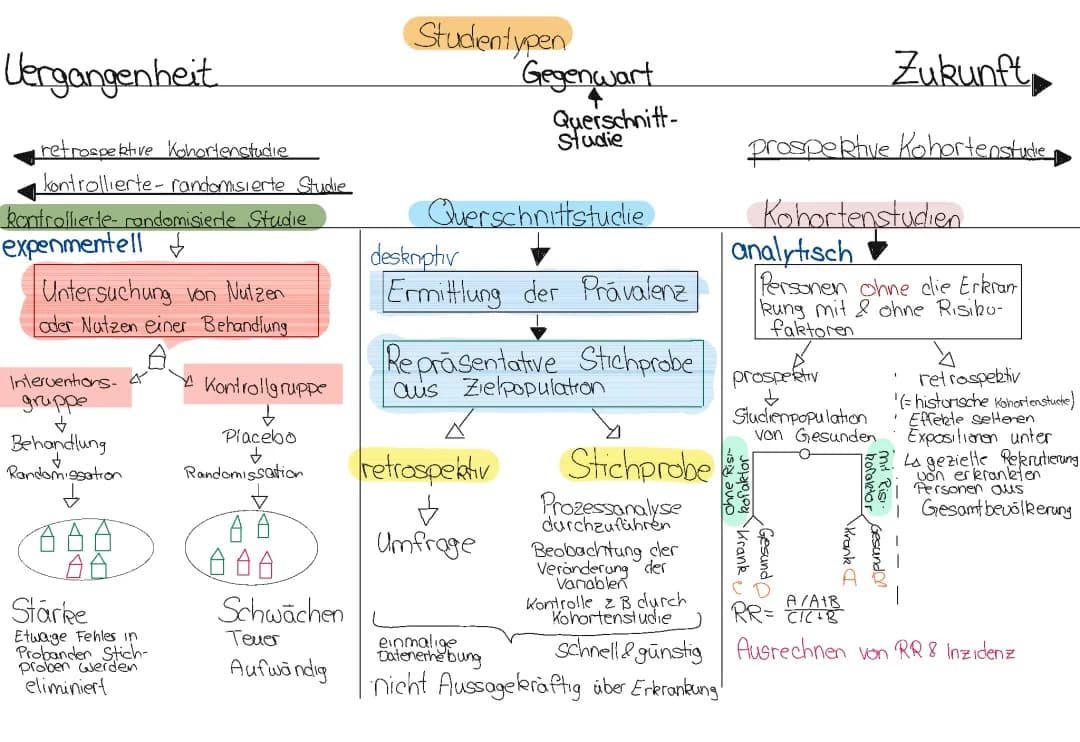 Studientypen
Vergangenheit
Gegenwart
Zukunft
Querschnitt-
studie
retrospektive Kohortenstudie
prospektive Kohortenstudie
kontrollierte-randomisierte Studie
kontrollierte-randomisierte Studie
experimentell
Untersuchung von Nutzen
oder Nutzen einer Behandlung
Interventions-
gruppe
Kontrollgruppe
Behandlung
Placebo
Randomissation
Randomissation
Stärke
Etwaige Fehles in
Probanden Stich-
proben werden
eliminiert
Schwächen
Teuer
Aufwändig
Querschnittstudie
deskriptiv
Ermittlung der Prävalenz
Repräsentative Stichprobe
aus Zielpopulation
retrospektiv
Stichprobe
Umfrage
Prozessanalyse
durchzuführen
Beobachtung der
Veränderung der
Variablen
Kontrolle z B durch
Kohortenstudie
einmalige
Datenerhebung
Schnell & günstig
nicht Aussagekräftig über Erkrankung
Kohortenstudien
analytisch
Personen ohne die Erkran-
kung mit & ohne Risiko-
faktoren
prospektiv
Studienpopulation
von Gesunden
ohne Risi-
kofaktor
mit Risi-
kofaktor
Krank
Gesund
Krank
Gesund
C D
A B
RR = A/A+B
C/C+B
retrospektiv
(= historische Kohortenstudie)
Effekte seltenen
Expositionen unter
↳ gezielte Rekrutierung
von erkrankten
Personen aus
Gesamtbevölkerung
Ausrechnen von RR & Inzidenz